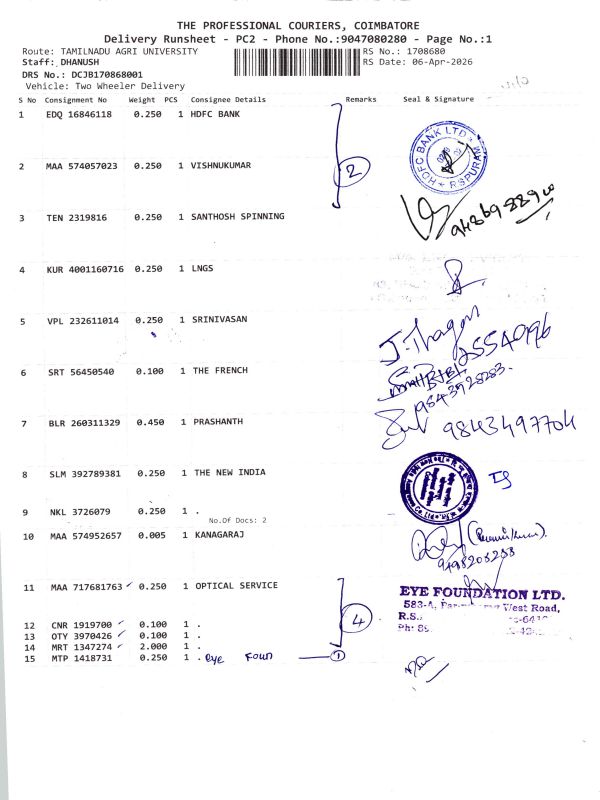 THE PROFESSIONAL COURIERS, COIMBATORE
Delivery Runsheet - PC2 - Phone No.:9047080280 - Page No.:1
Route: TAMILNADU AGRI UNIVERSITY RS No.: 1708680
Staff: DHANUSH RS Date: 06-Apr-2026
DRS No.: DCJB170868001
Vehicle: Two Wheeler Delivery
S No Consignment No Weight PCS Consignee Details Remarks Seal & Signature
1 EDQ 16846118 0.250 1 HDFC BANK
HDFC BANK LTD. ★ R S PURAM ★
2 MAA 574057023 0.250 1 VISHNUKUMAR
2
3 TEN 2319816 0.250 1 SANTHOSH SPINNING
4 KUR 4001160716 0.250 1 LNGS
5 VPL 232611014 0.250 1 SRINIVASAN
6 SRT 56450540 0.100 1 THE FRENCH
7 BLR 260311329 0.450 1 PRASHANTH
9843497704
8 SLM 392789381 0.250 1 THE NEW INDIA
9 NKL 3726079 0.250 1 .
No.Of Docs: 2
10 MAA 574952657 0.005 1 KANAGARAJ
11 MAA 717681763 ✓ 0.250 1 OPTICAL SERVICE
EYE FOUNDATION LTD.
583-A, West Road,
R.S.
Ph:
4
12 CNR 1919700 ✓ 0.100 1 .
13 OTY 3970426 ✓ 0.100 1 .
14 MRT 1347274 ✓ 2.000 1 .
15 MTP 1418731 0.250 1 . eye Foun 1